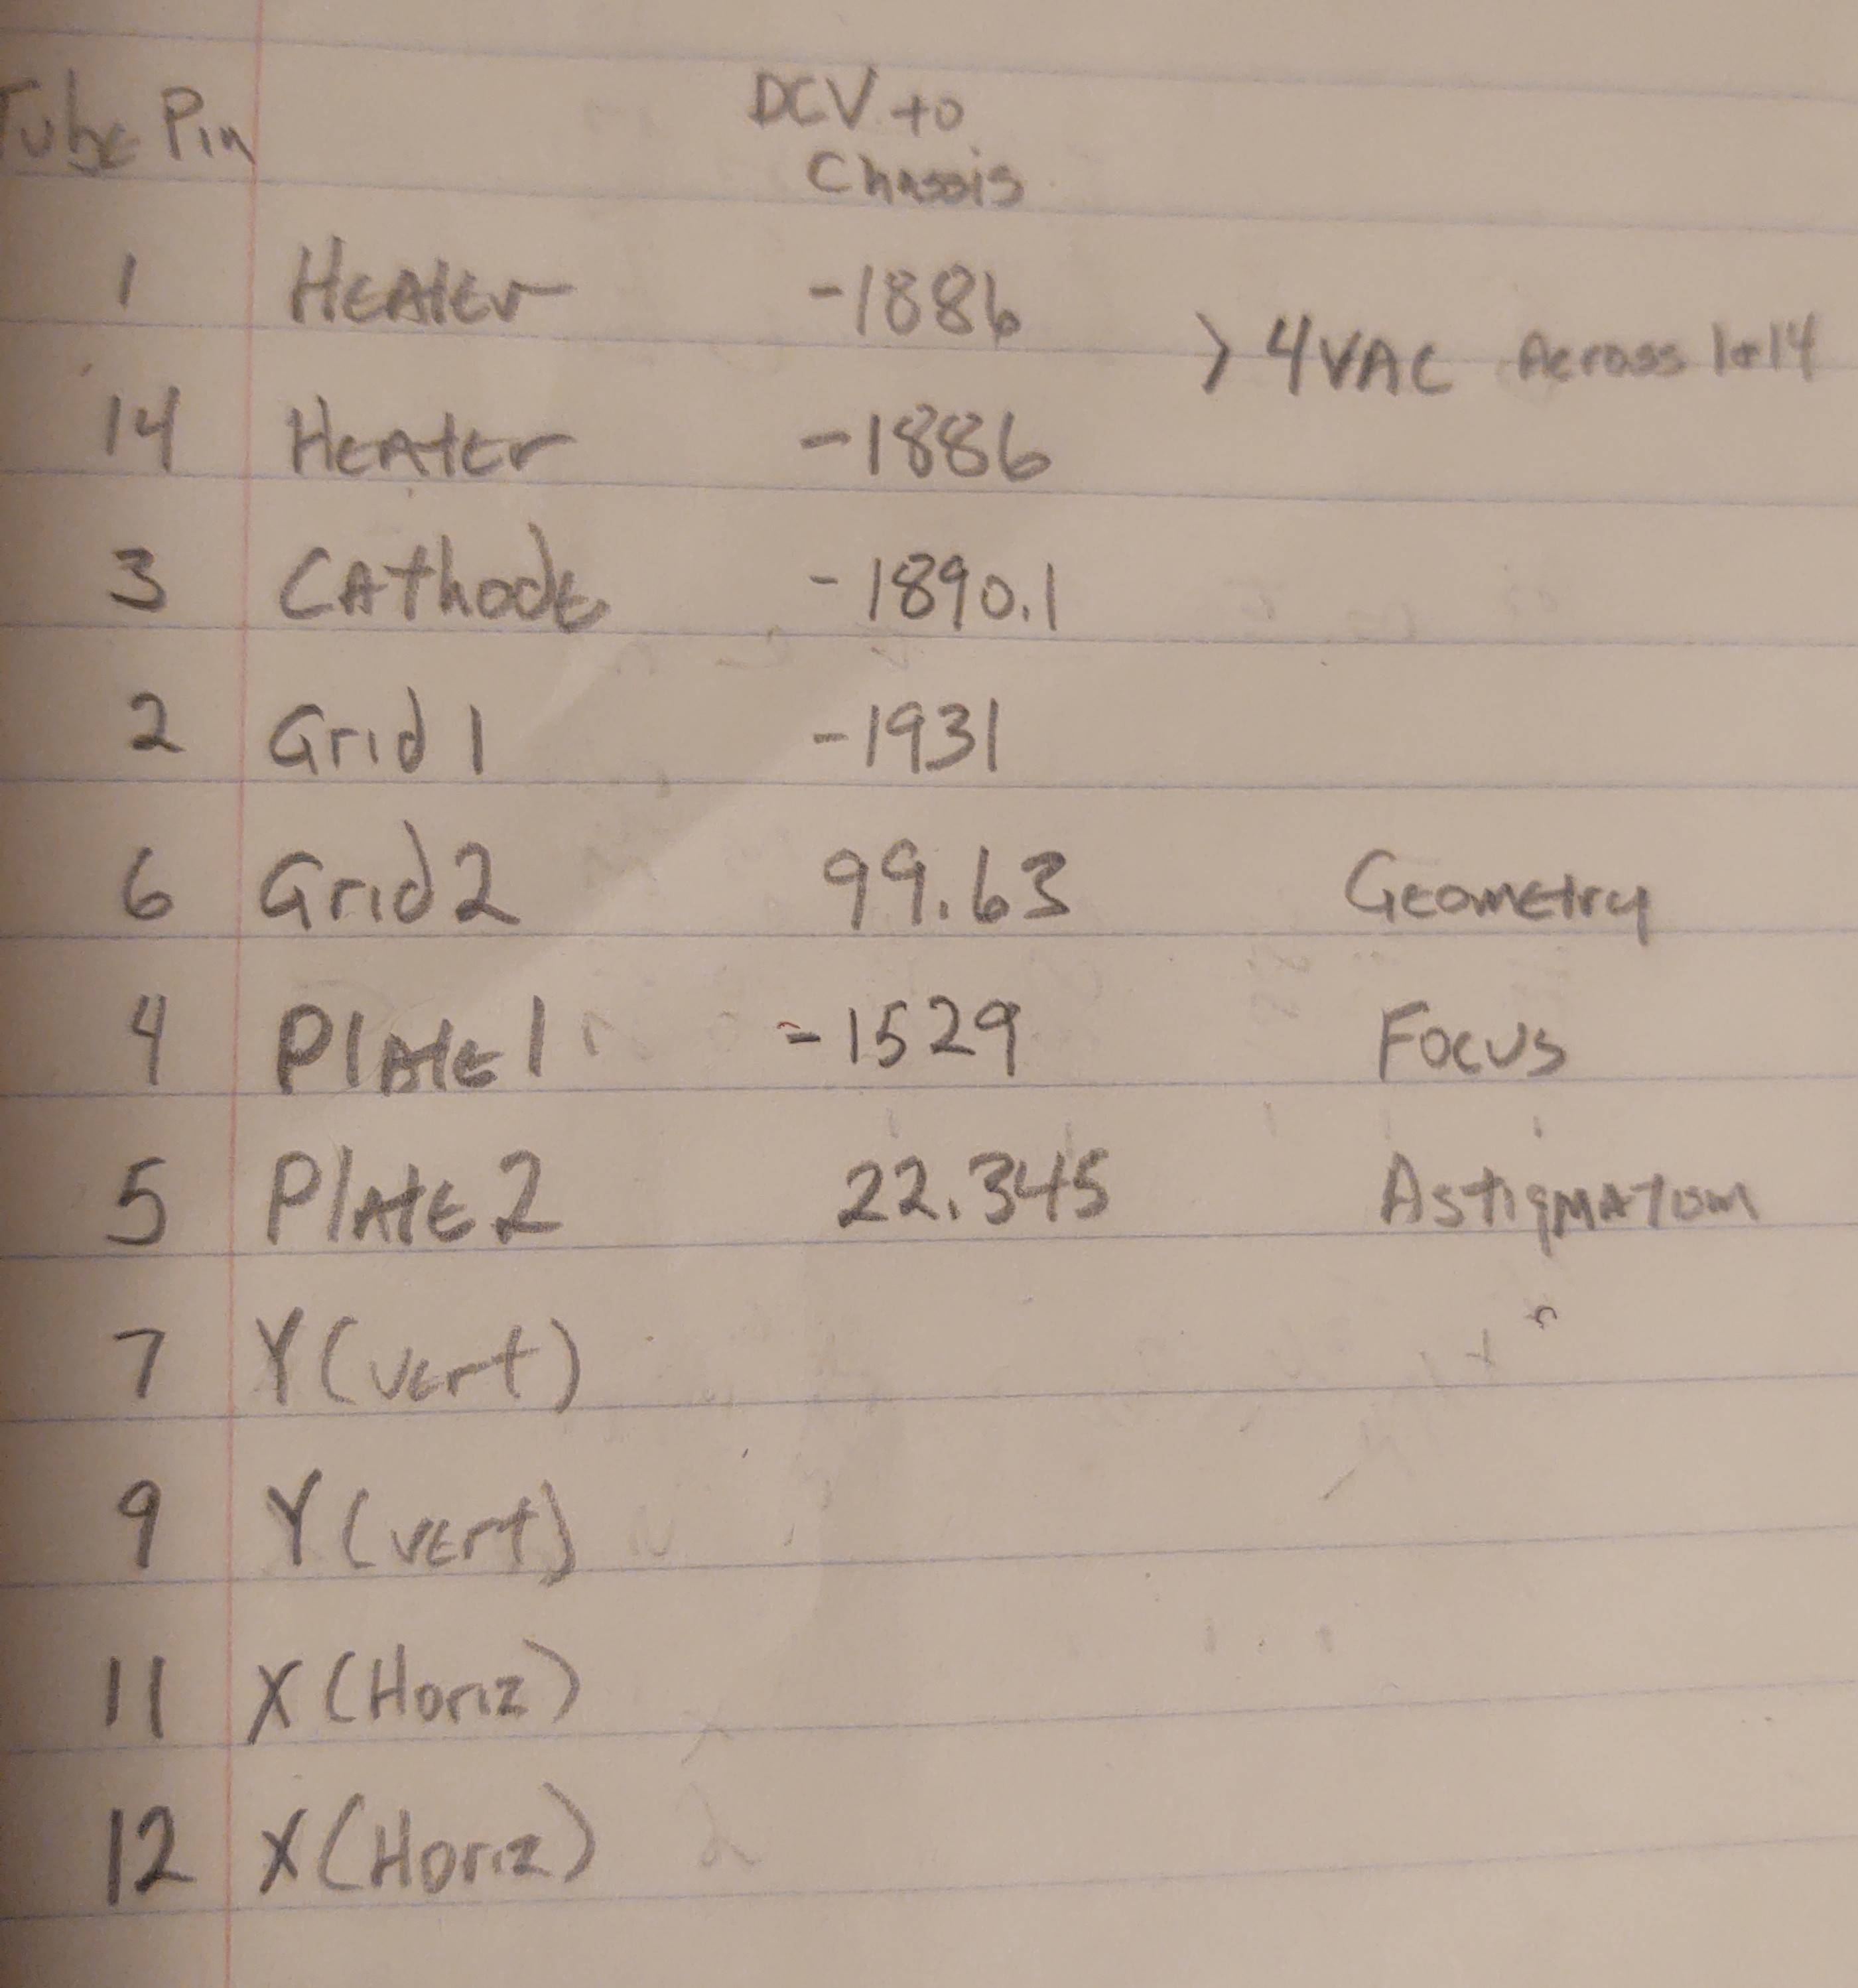 Tube Pin DCV to
Chassis
1 Heater -1886
> 4VAC Across 1+14
14 Heater -1886
3 Cathode -1890.1
2 Grid 1 -1931
6 Grid 2 99.63 Geometry
4 Plate 1 -1529 Focus
5 Plate 2 22.345 Astigmatism
7 Y (vert)
9 Y (vert)
11 X (Horiz)
12 X (Horiz)